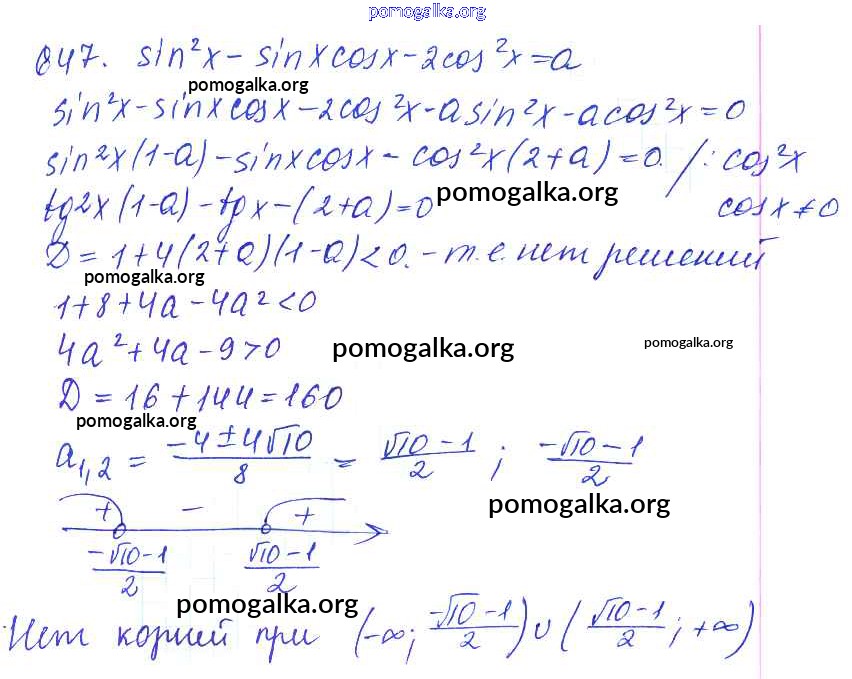 pomogalka.org
847. sin²x - sinxcosx - 2cos²x = a
pomogalka.org
sin²x - sinxcosx - 2cos²x - asin²x - acos²x = 0
sin²x(1-a) - sinxcosx - cos²x(2+a) = 0. /: cos²x
tg²x(1-a) - tgx - (2+a) = 0 pomogalka.org cosx ≠ 0
D = 1 + 4(2+a)(1-a) < 0. - т.е. нет решений
pomogalka.org
1 + 8 + 4a - 4a² < 0
4a² + 4a - 9 > 0 pomogalka.org pomogalka.org
D = 16 + 144 = 160
pomogalka.org
a₁,₂ = (-4 ± 4√10)/8 = (√10 - 1)/2 ; (-√10 - 1)/2
pomogalka.org
+ - +
(-√10 - 1)/2 (√10 - 1)/2
pomogalka.org
Нет корней при (-∞; (-√10 - 1)/2) ∪ ((√10 - 1)/2; +∞)